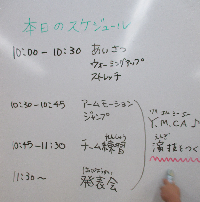 本日のスケジュール
10:00～10:30 あいさつ
ウォーミングアップ
ストレッチ
10:30～10:45 アームモーション
ジャンプ
10:45～11:30 チーム練習
れんしゅう
11:30～ 発表会
はっぴょうかい
Y.M.C.A♪
えんぎ
演技をつく